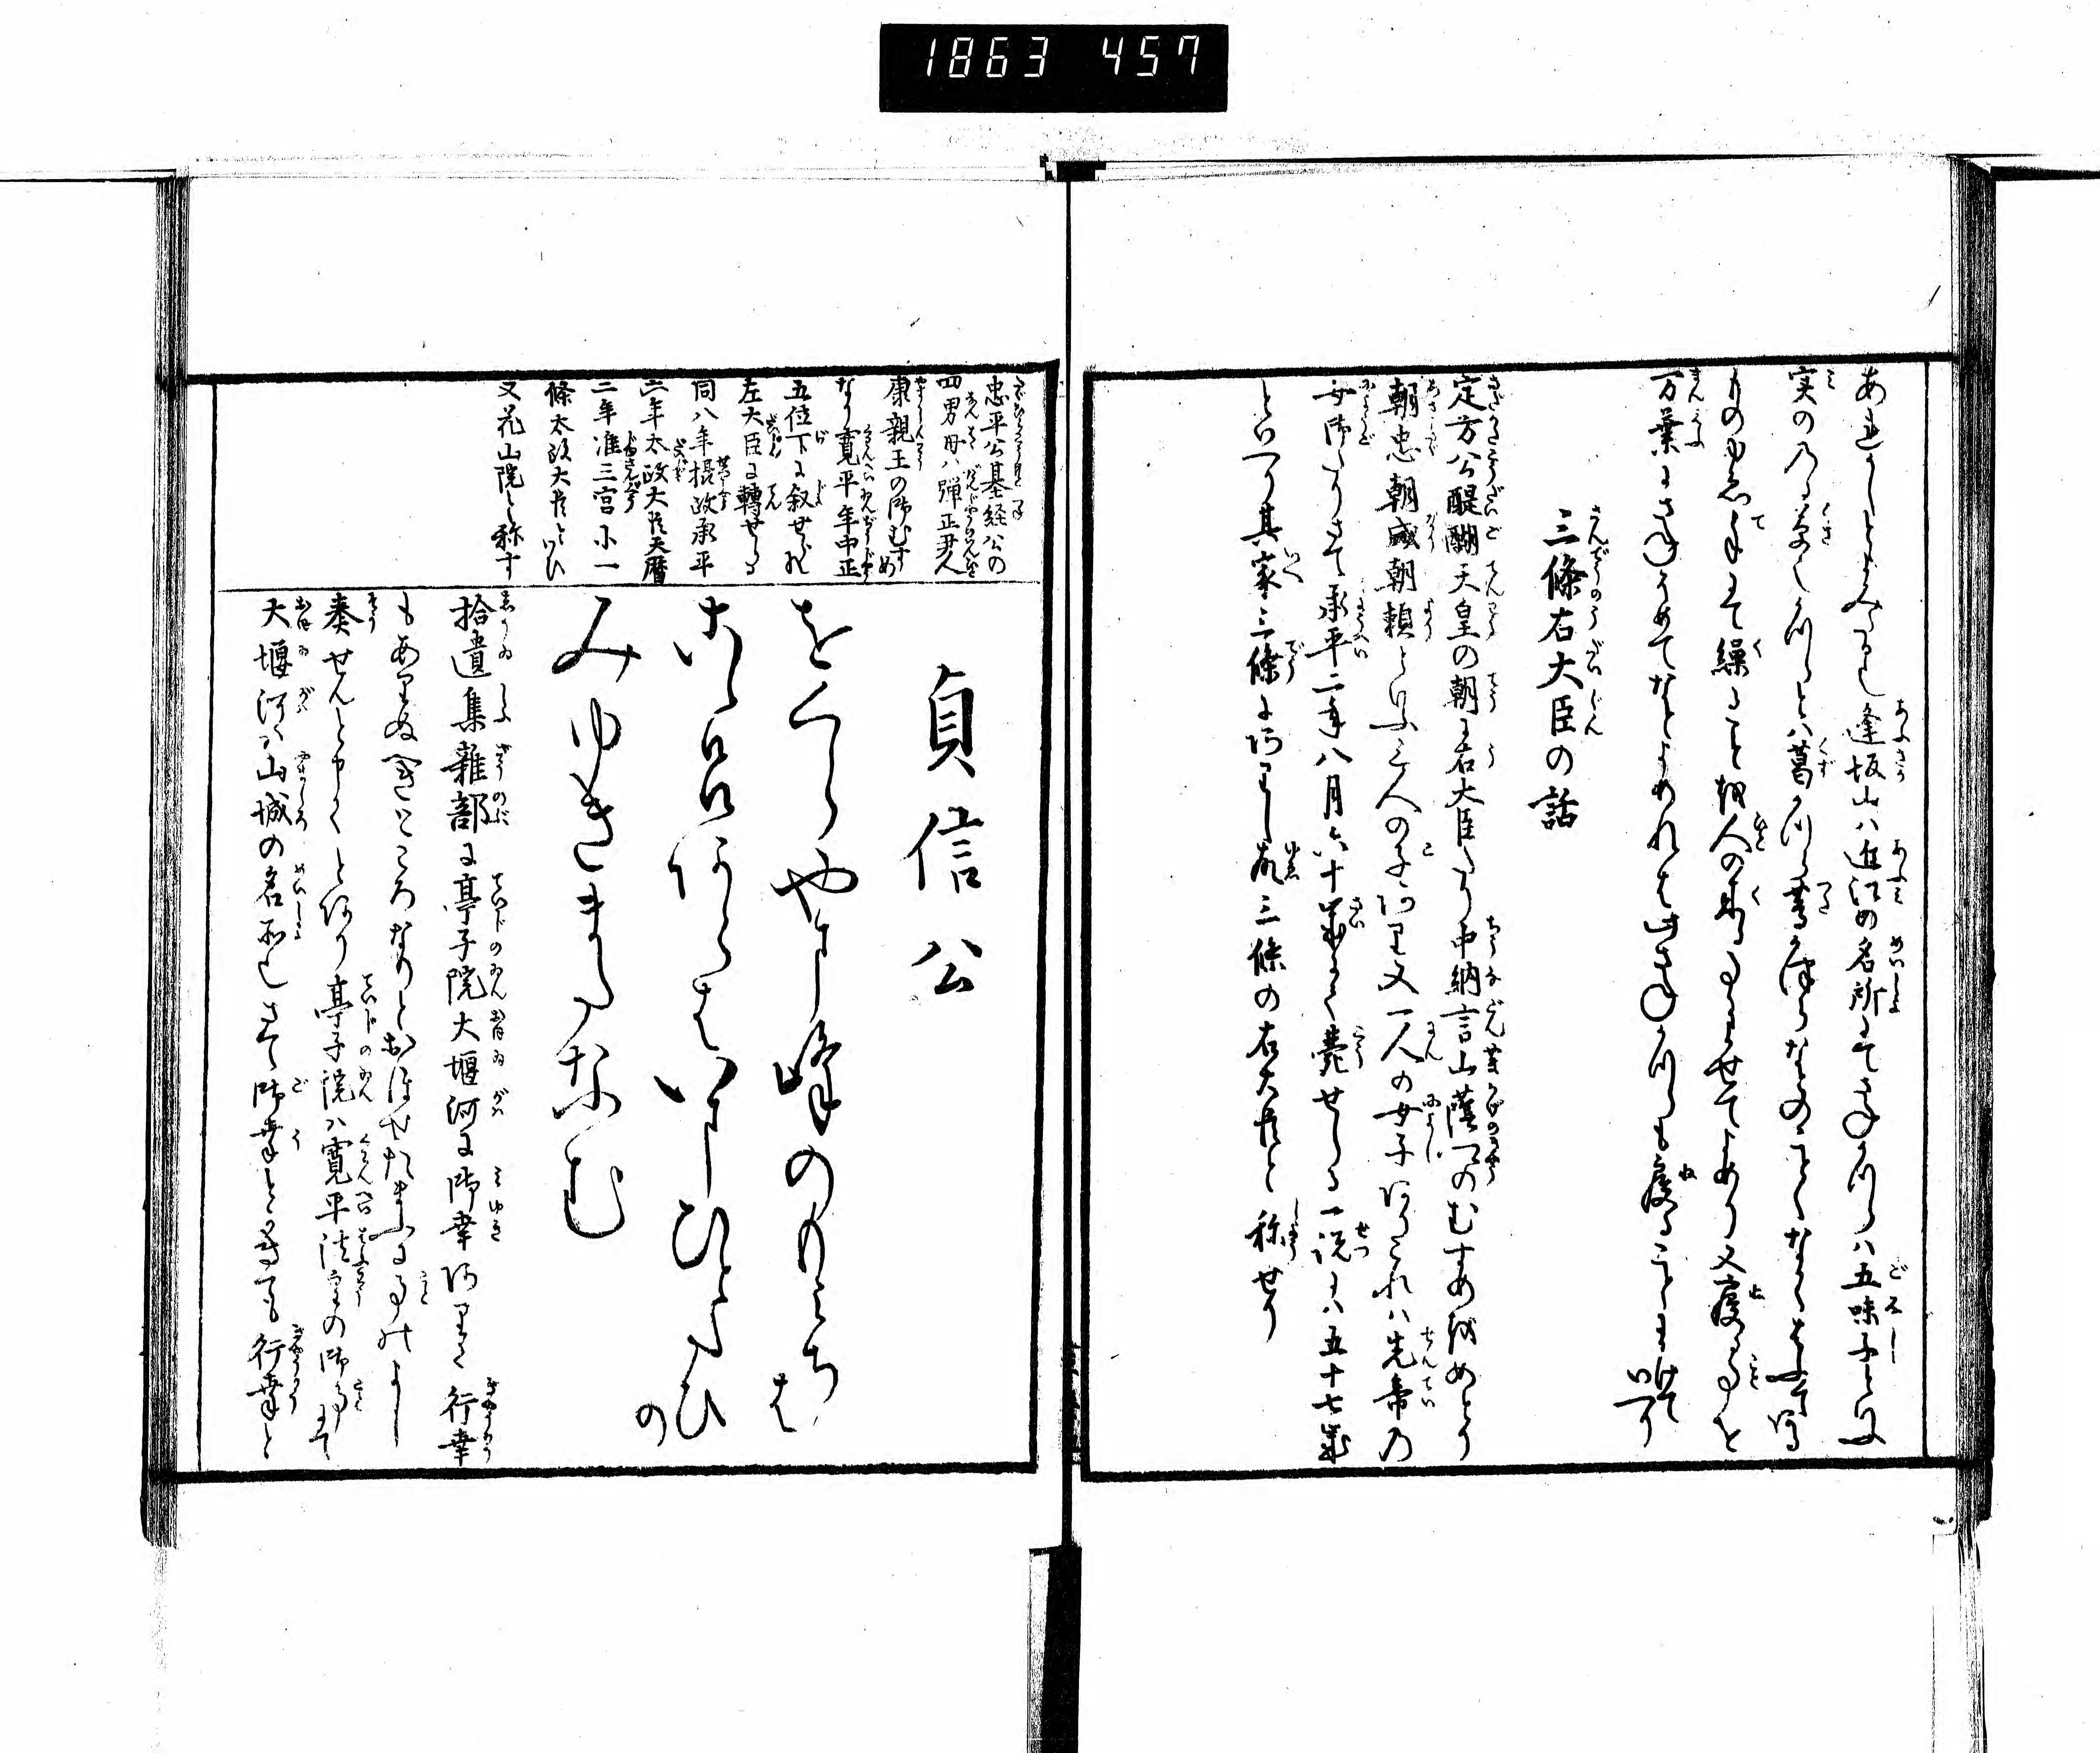 1863 457
あれかしとよみ給へり逢坂山ハ近江の名所にてさねかづらハ五味子といふ
実のなる草也かづらとハ葛かづら蔦かづらなどのことくながくはふて
ものゆゑ手にて繰ること故人の来るによせてよめり又寝る事を
万葉にさねそめてなどよめれば此さねかづらも寝ることにかけていへり
三條右大臣の話
定方公醍醐天皇の朝に右大臣たり中納言山蔭のむすめをめとり
朝忠朝成朝頼といふ三人の子あり又一人の女子ありこれハ先帝の
女御たりさて承平二年八月六十歳にて薨せらる一説にハ五十七歳
といへり其家三條にありし故三條の右大臣と称せり
忠平公基経公の
四男母ハ弾正尹人
康親王の御むすめ
なり寛平年中正
五位下に叙せられ
左大臣に轉せらる
同八年摂政承平
六年太政大臣天暦
三年准三宮小一
條太政大臣といひ
又花山院と称す
貞信公
をくらやま峰のもみちは
こゝろあらはいまひとたひの
みゆきまたなむ
拾遺集雑部に亭子院大堰河に御幸ありて行幸
もありぬべきところなりとおほせたまふに事のよし
奏せんと申てとあり亭子院ハ寛平法皇の御事にて
大堰河ハ山城の名所也さて御幸とかきても行幸と